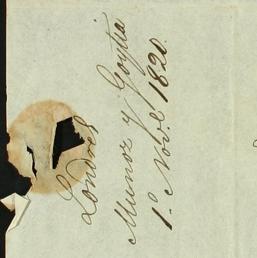 Londres
Munoz y Goytia
1º Nov.e 1820.